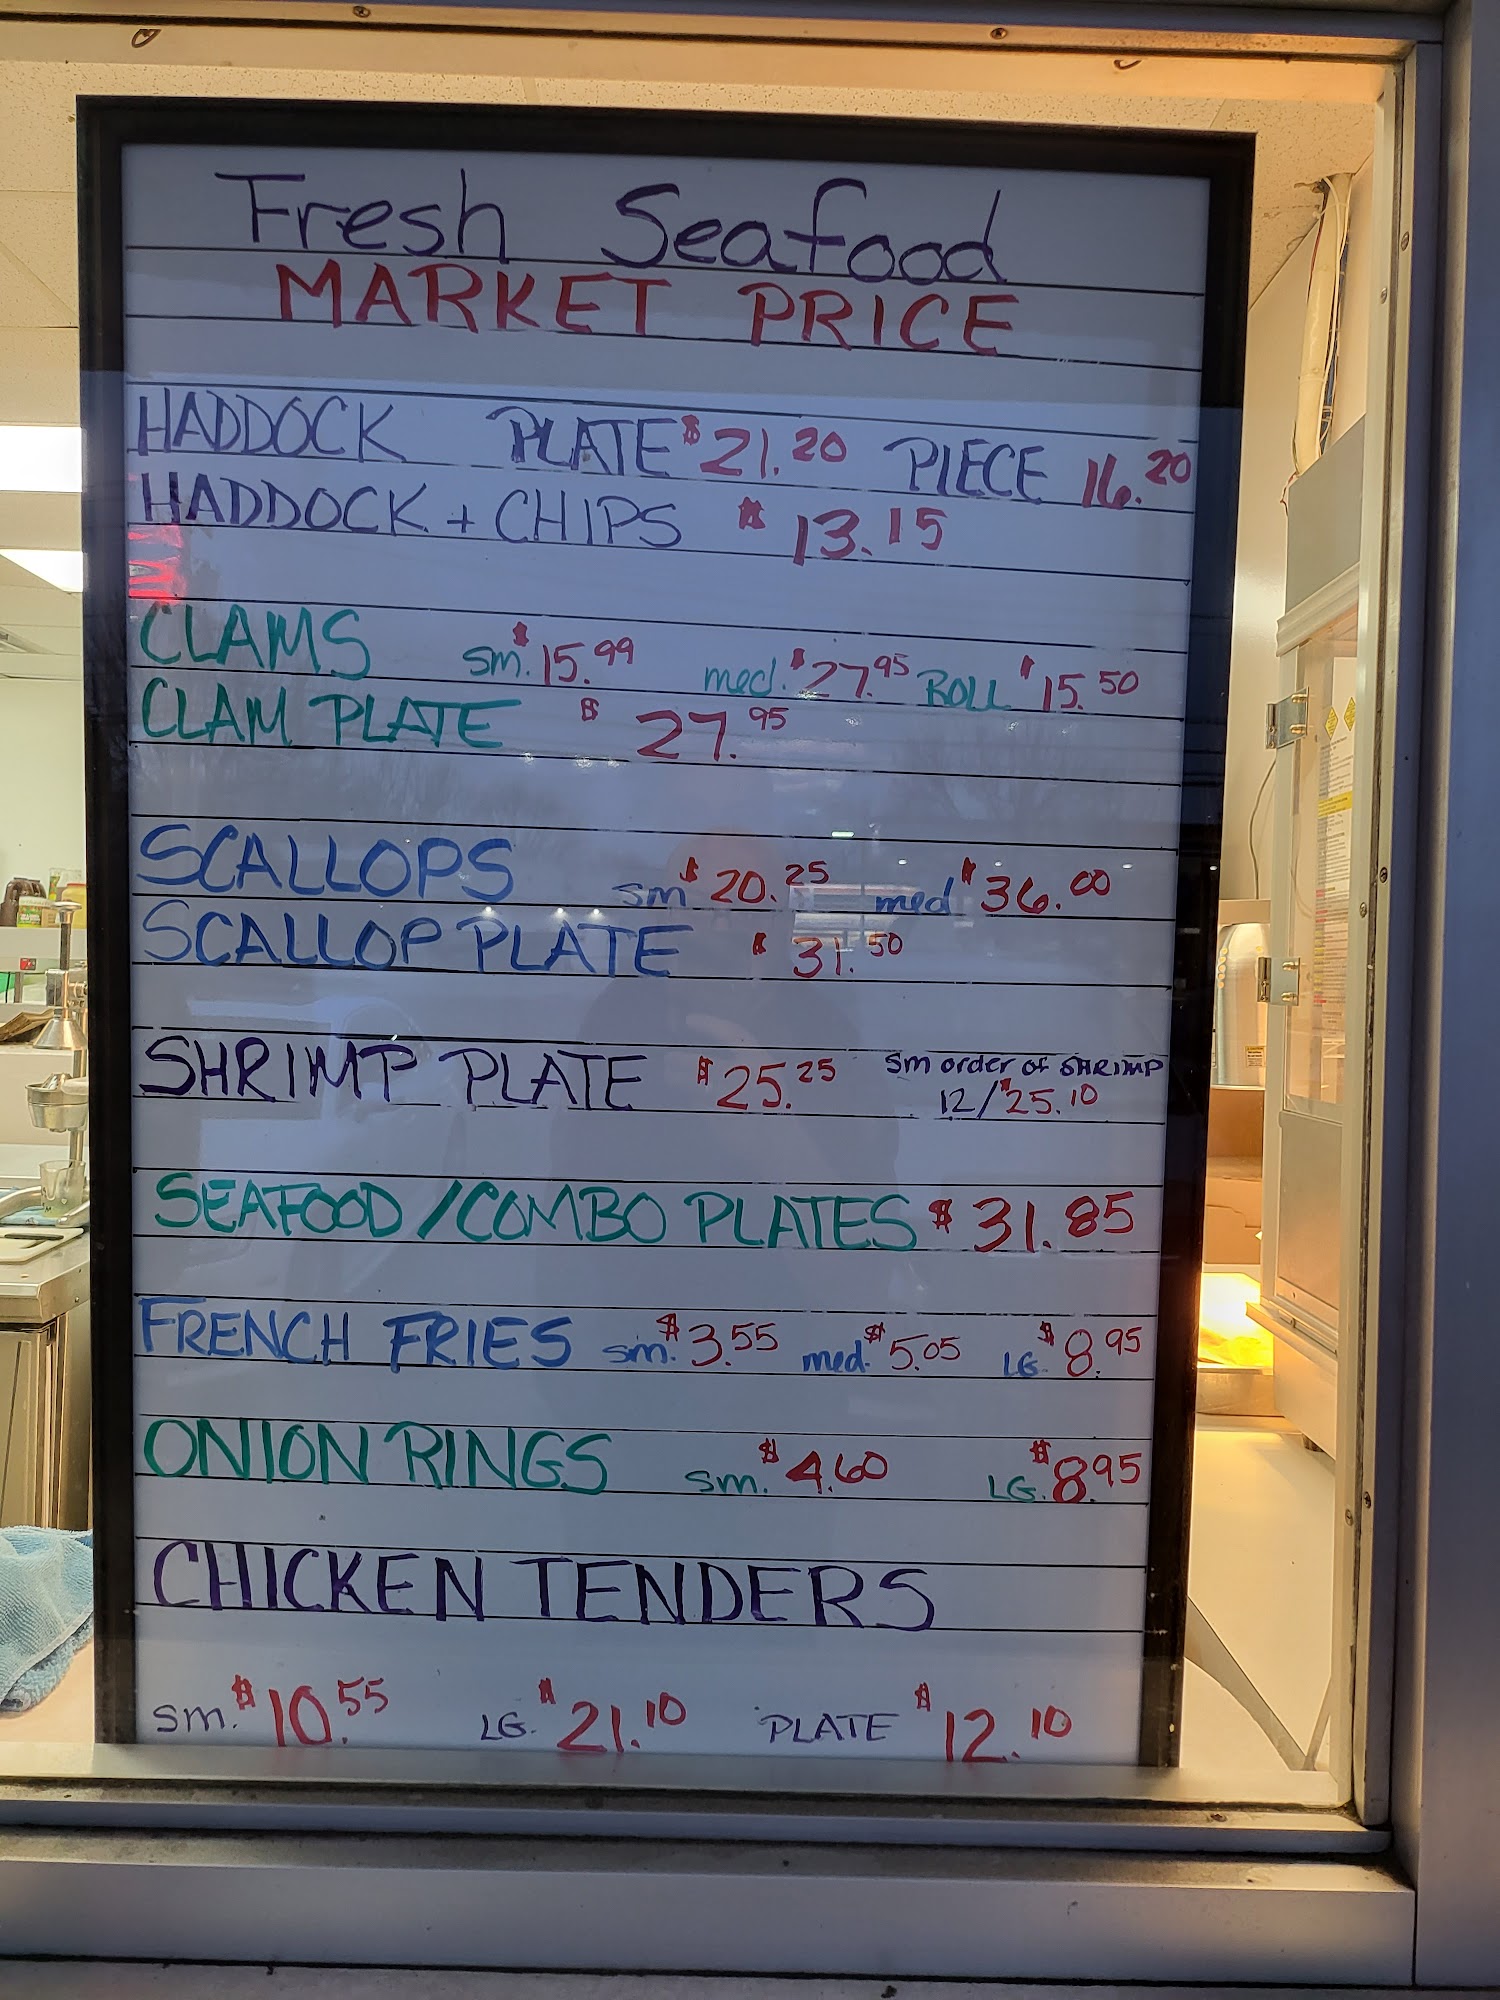 Fresh Seafood
MARKET PRICE
HADDOCK PLATE $21.20 PIECE 16.20
HADDOCK + CHIPS $13.15
CLAMS sm. $15.99 med. $27.95 ROLL $15.50
CLAM PLATE $27.95
SCALLOPS sm $20.25 med $36.00
SCALLOP PLATE $31.50
SHRIMP PLATE $25.25 Sm order of SHRIMP
12/$25.10
SEAFOOD/COMBO PLATES $31.85
FRENCH FRIES sm. $3.55 med. $5.05 LG. $8.95
ONION RINGS sm. $4.60 LG. $8.95
CHICKEN TENDERS
sm. $10.55 LG. $21.10 PLATE $12.10